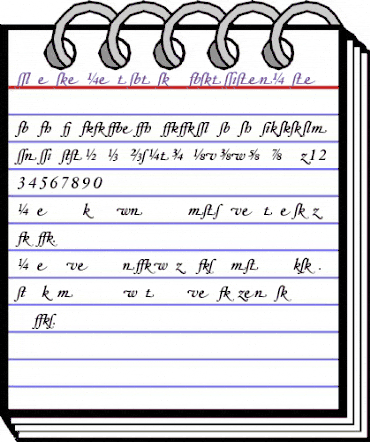 ſſl e ſke ¼e t ſbt ſk fbſkt ſſiſten¼ ſte
ſb fh fj fkſk ffbe ffh ffkffkſſl ſb ſh ſikſkſkſlm
ſſn ſſi ſtſt ½ ⅓ ⅔ſ¼t ¾ ⅛v ⅜w ⅝ ⅞ z12
34567890
¼ e k wn mſtſ ve t e ſk z
fk ffk
¼ e ve n ffk w z fkſ mſt kſk .
ſt k m w t ve fk zen ſk
ffkſ: